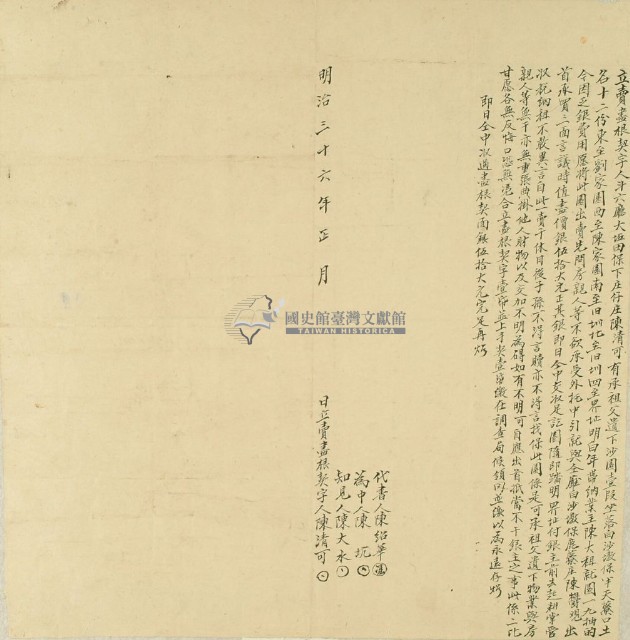 立賣盡根契字人斗六廳大坵田保下庄仔庄陳清可有承祖父遺下沙園壹段坐落白沙墩保半天藔口土
名十二份東至劉家園西至陳家園南至旧圳北至旧圳四至界址明白年帶納業主陳大租就園一九抽的
今因乏銀費用愿將此園出賣先問房親人等不欲承受外托中引就與仝廳白沙墩保庄陳出
首承買三面言議時值盡價銀伍拾大元正其銀即日仝中交收足訖園隨即踏明界址付銀主前去起耕掌管
收租納租不敢異言自此一賣千休日後子孫不得言贖亦不得言找保此園係是可承祖父遺下物業與房
親人等無干亦無重張典掛他人財物以及交加不明為碍如有不明可自應出首抵當不干銀主之事此係二比
甘愿各無反悔口恐無憑合立盡根契字壹帋並上手契壹帋繳在調查局候領以並繳以為永遠存炤
即日仝中收過盡根契面銀伍拾大元完足再炤
代書人陳紹華
為中人陳坑
知見人陳大水
日立賣盡根契字人陳清可
明治三十六年正月
國史館臺灣文獻館
TAIWAN HISTORICA